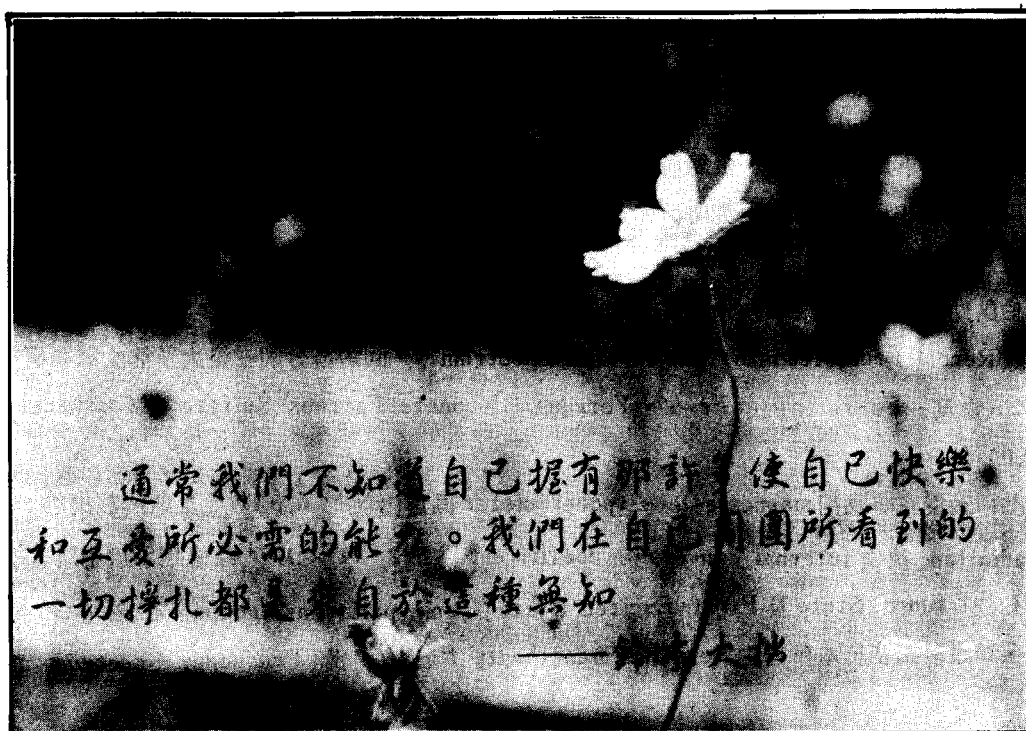 通常我們不知道自己握有那許使自己快樂
和互愛所必需的能。我們在自己周圍所看到的
一切掙扎都是來自於這種無知
——鈴木大拙